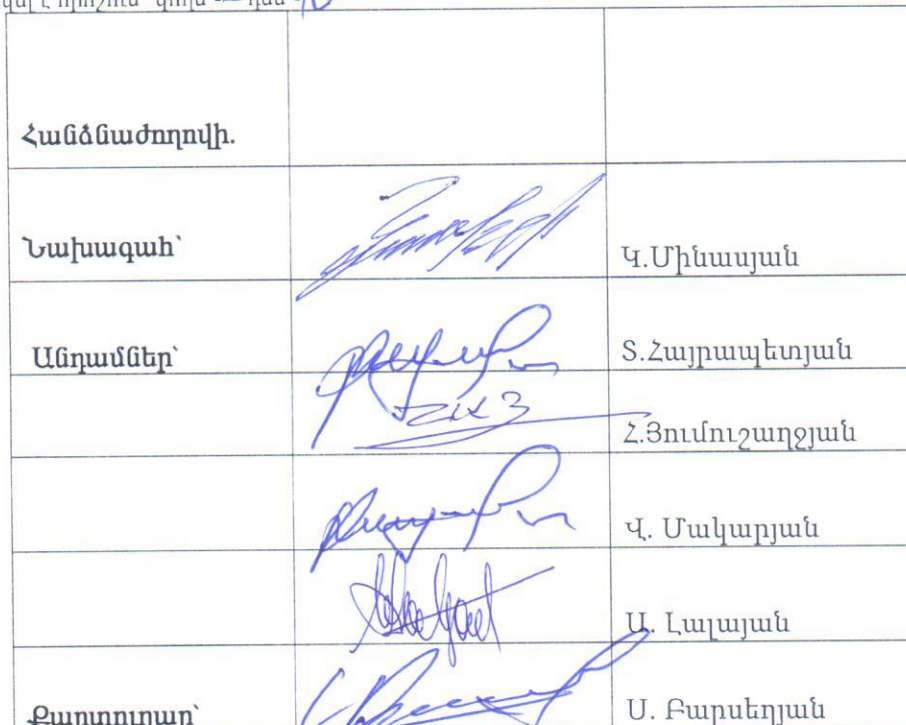 Հանձնաժողովի.
Նախագահ՝ Կ.Մինասյան
Անդամներ՝ Տ.Հայրապետյան
Հ.Յումուշաղջյան
Վ. Մակարյան
Ա. Լալայան
Քարտուղար՝ Ս. Բարսեղյան